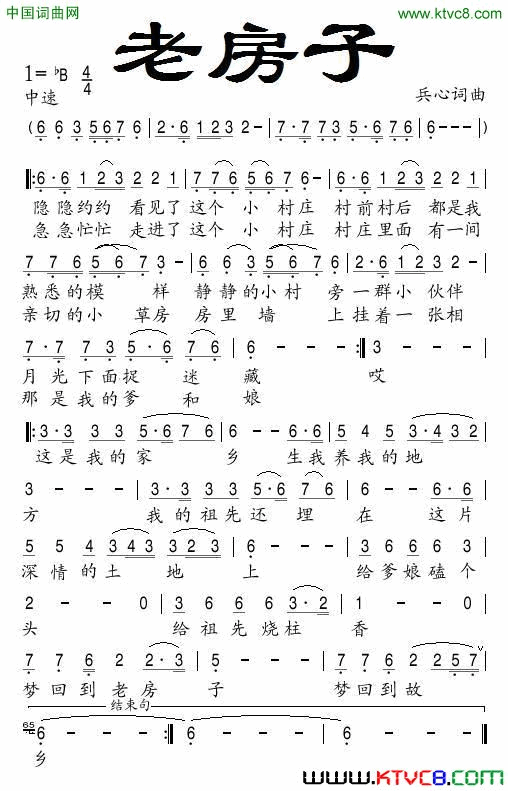 中国词曲网 http://www.ktvc8.com
老房子
1=♭B 4/4
中速 兵心词曲
(6 6 3 5 6 7 6 | 2·6 1 2 3 2 - | 7·7 7 3 5·6 7 6 | 6 - - -)
‖:6·6 6·6 1 2 3 2 2 1 | 7 7 6 5·6 7 6 - | 6·6 6·6 1 2 3 2 2 1 |
隐隐约约 看见了 这个 小 村庄 村前村后 都是我
急急忙忙 走进了 这个 小 村庄 村庄里面 有一间
7 7 6 5 6 7 3 - | 6·6 6 3 5 5 6 7 6 | 2·6 6 1 2 3 2 2 |
熟悉的模 样 静静的小村 旁一群小 伙伴
亲切的小 草房 房里墙 上挂着一 张相
7·7 7 3 5·6 7 | 6 - - - :‖ 3 - - - |
月光下面捉 迷 藏 哎
那是我的爹 和 娘
‖:3·3 3 3 5·6 7 6 | 6 - - 5·6 | 5 4 5 3·4 3 2 |
这是我的家 乡 生我养我的地
3 - - - | 3·3 3 3 5·6 7 6 | 6 - - 6 6 |
方 我的祖先还埋 在 这片
5 5 4 3 4 3 | 3 2 3 2 1 | 6 - - - | 3 6 6 6 3 |
深情的土 地 上 给爹娘磕个
2 - - 0 | 3 6 6 6 3·2 | 1 - - 0 |
头 给祖先烧柱 香
7 7 6 2 2·3 | 5 - - - | 7 7 6 2 2 5 7 |
梦回到老房 子 梦回到故
结束句
65 6 - - - :‖ 6 - - - | 6 - - - ‖
乡
www.KTVC8.com